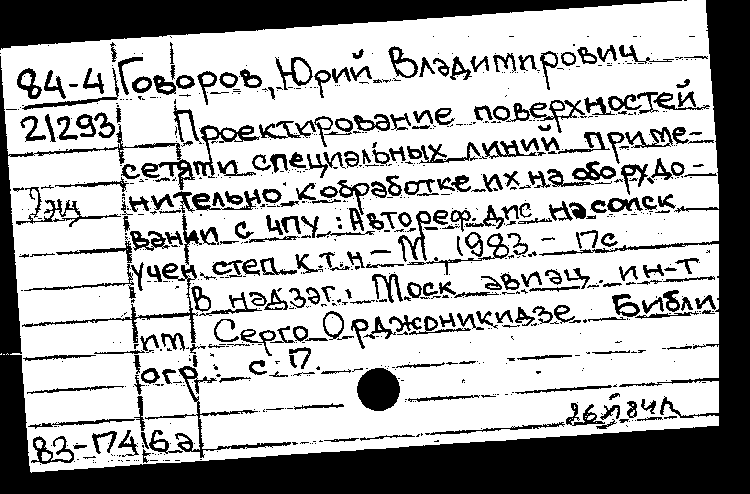 84-4 Говоров, Юрий Владимирович.
21293 Проектирование поверхностей
сетями специальных линий приме-
нительно к обработке их на оборудо-
вании с ЧПУ : Автореф. дис. на соиск.
учен. степ. к.т.н - М., 1983. - 17с.
В надзаг.: Моск. авиац. ин-т
им. Серго Орджоникидзе Библи
огр.: с. 17.
83-17416а